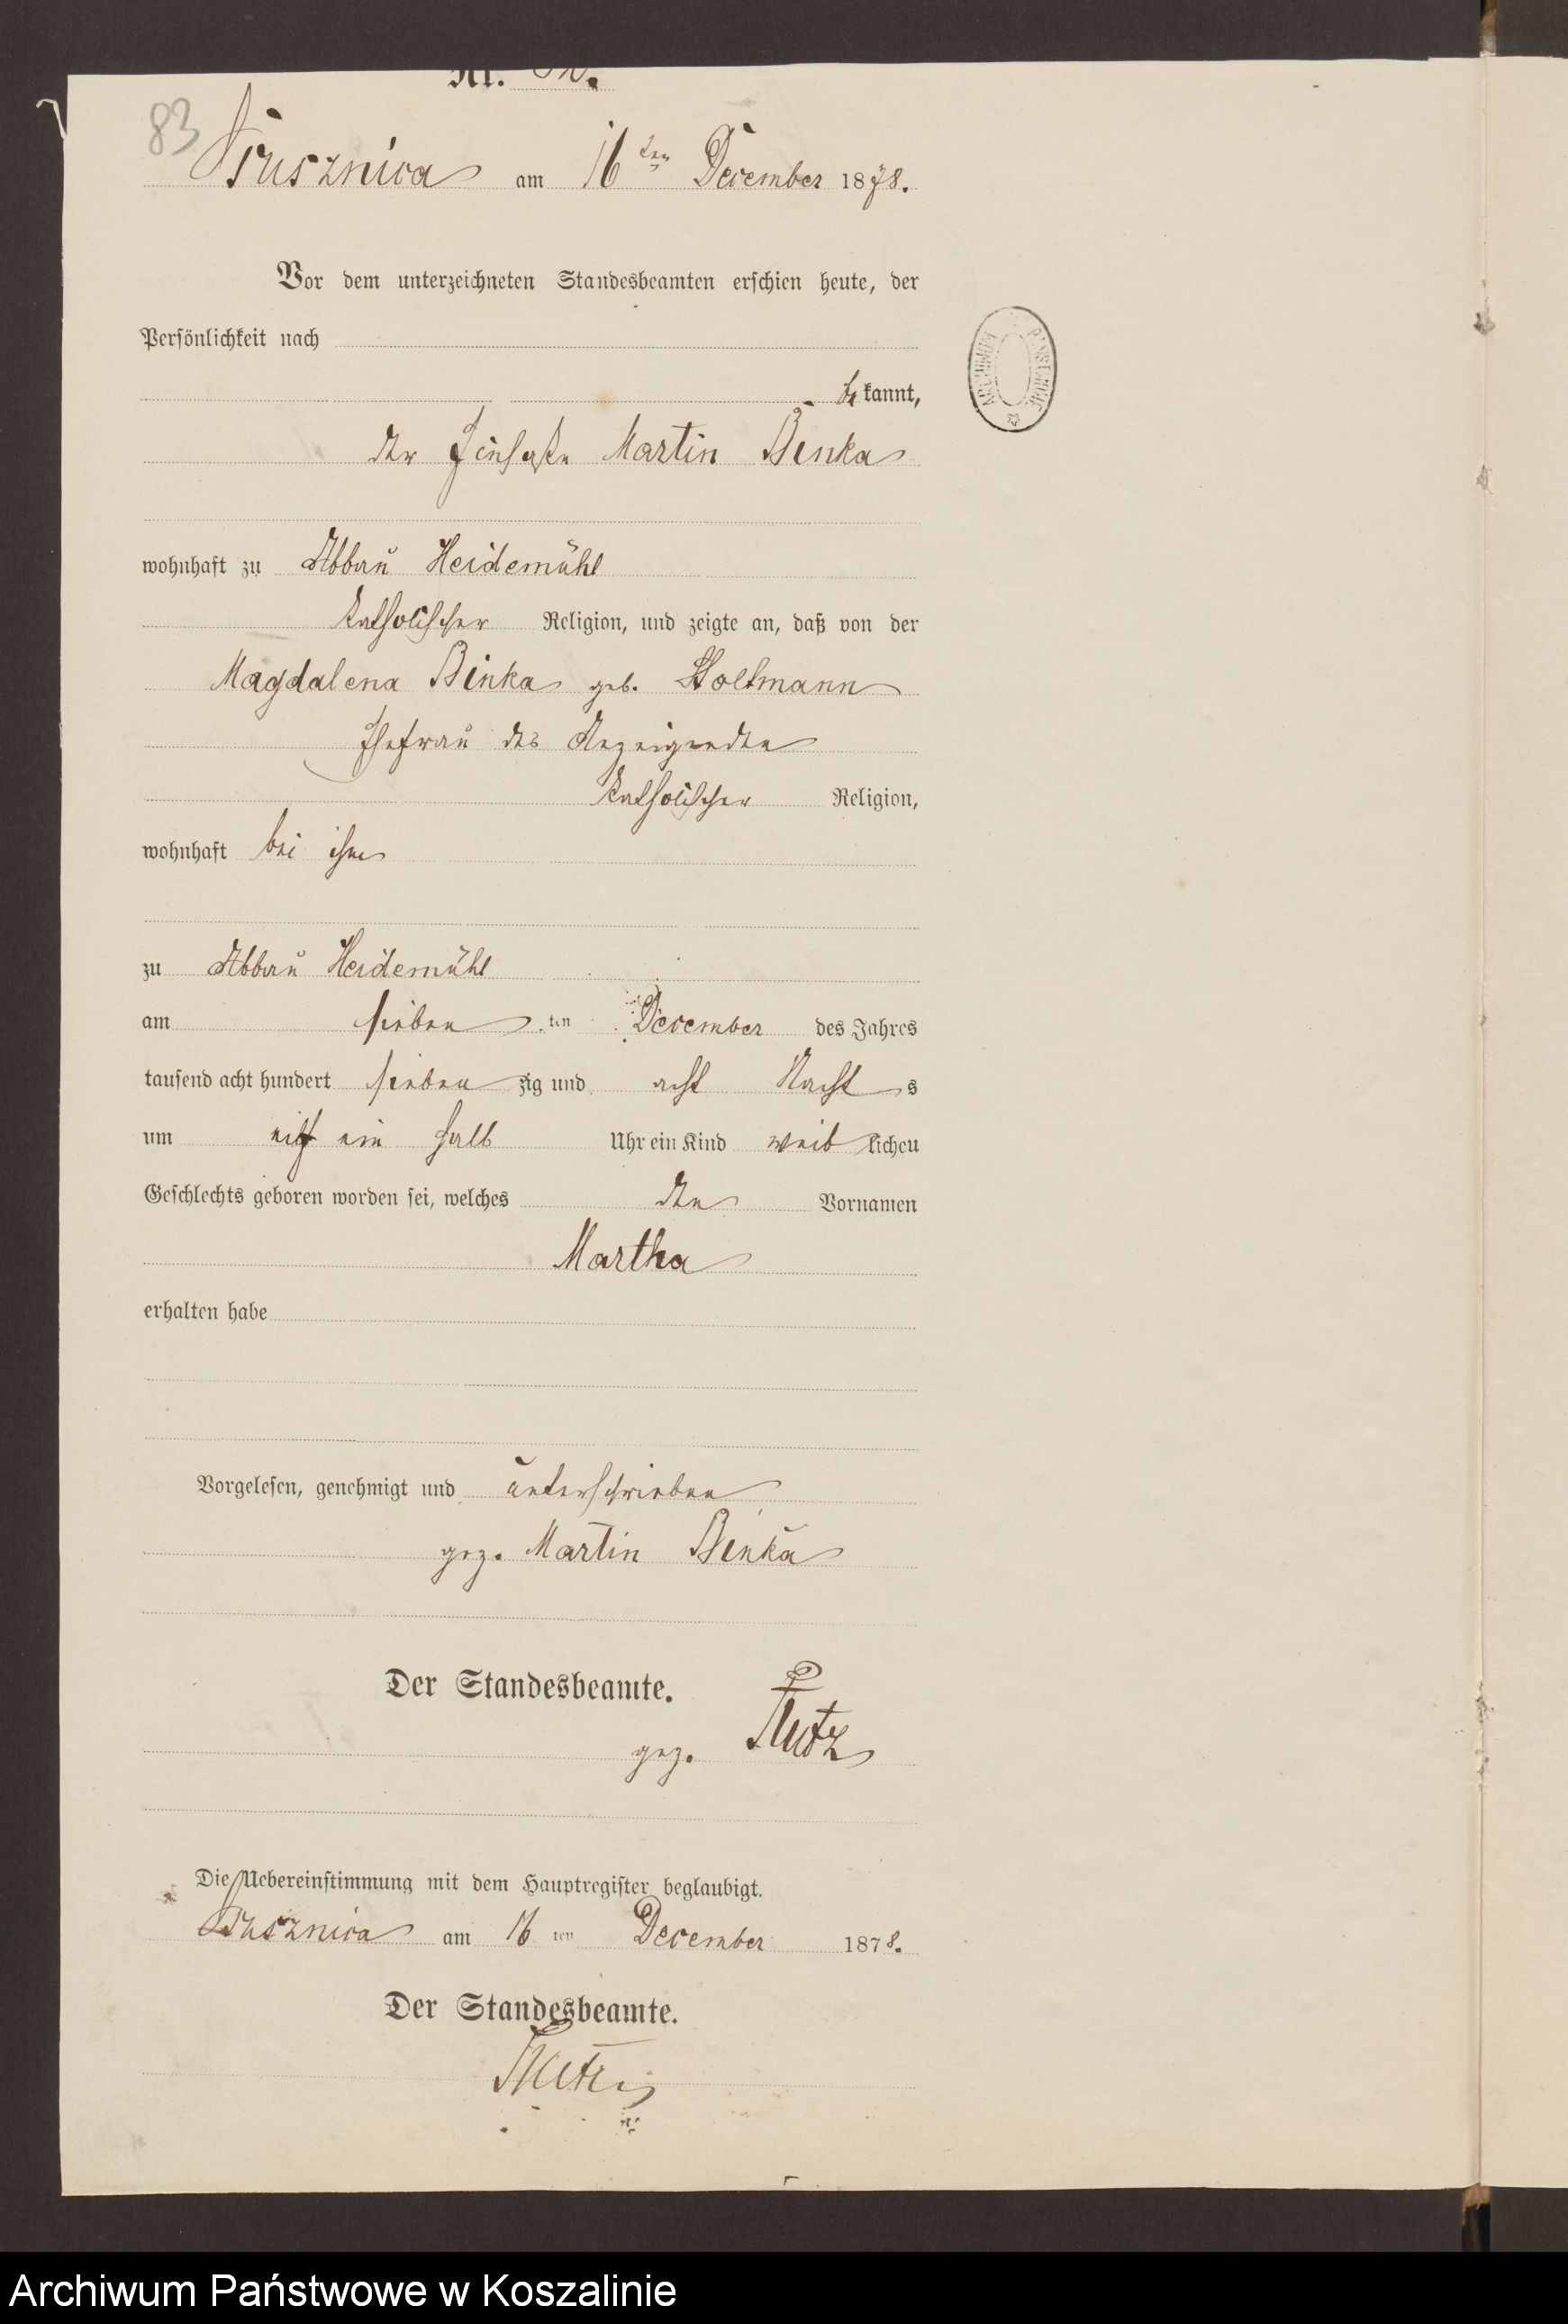 Nr.
83
Prusznica am 16ten December 1878.
Vor dem unterzeichneten Standesbeamten erschien heute, der
Persönlichkeit nach
be kannt,
der Einsaße Martin Binka
wohnhaft zu Abbau Heidemühl
katholischer Religion, und zeigte an, daß von der
Magdalena Binka geb. Stoltmann
Ehefrau des Anzeigenden
katholischer Religion,
wohnhaft bei ihm
zu Abbau Heidemühl
am sieben ten December des Jahres
tausend acht hundert sieben zig und acht Nacht s
um eilf ein halb Uhr ein Kind weib lichen
Geschlechts geboren worden sei, welches den Vornamen
Martha
erhalten habe
Vorgelesen, genehmigt und unterschrieben
gez. Martin Binka
Der Standesbeamte.
gez.
Die Uebereinstimmung mit dem Hauptregister beglaubigt.
Prusznica am 16 ten December 1878.
Der Standesbeamte.
ARCHIWUM PAŃSTWOWE
Archiwum Państwowe w Koszalinie